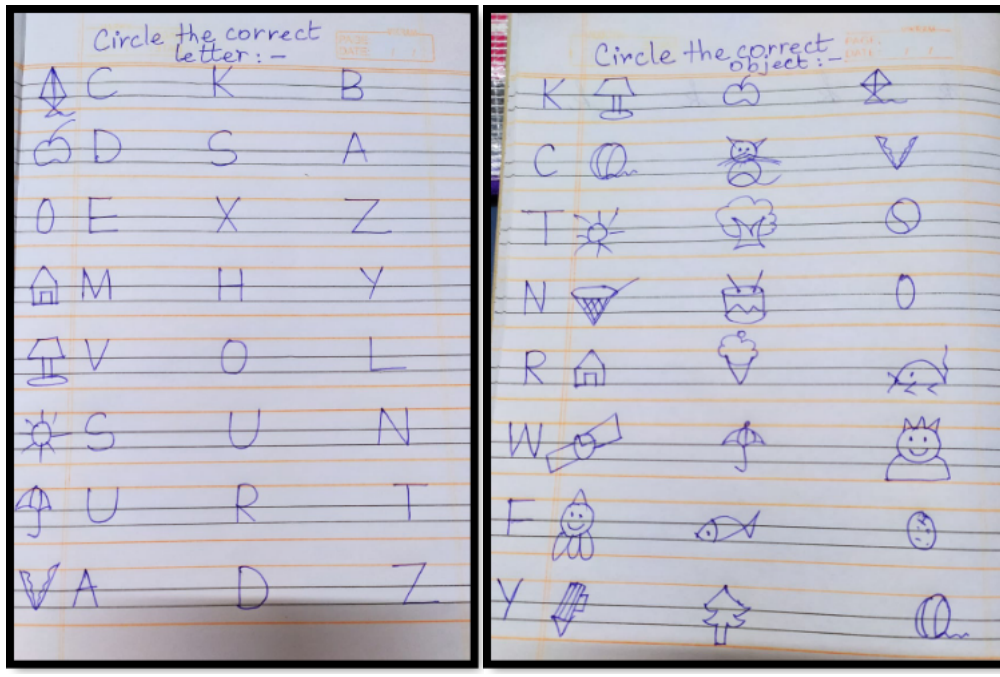 Circle the correct
letter :-
C K B
D S A
O E X Z
M H Y
V O L
S U N
U R T
A D Z
Circle the correct
object :-
K
C
T
N
R
W
F
Y